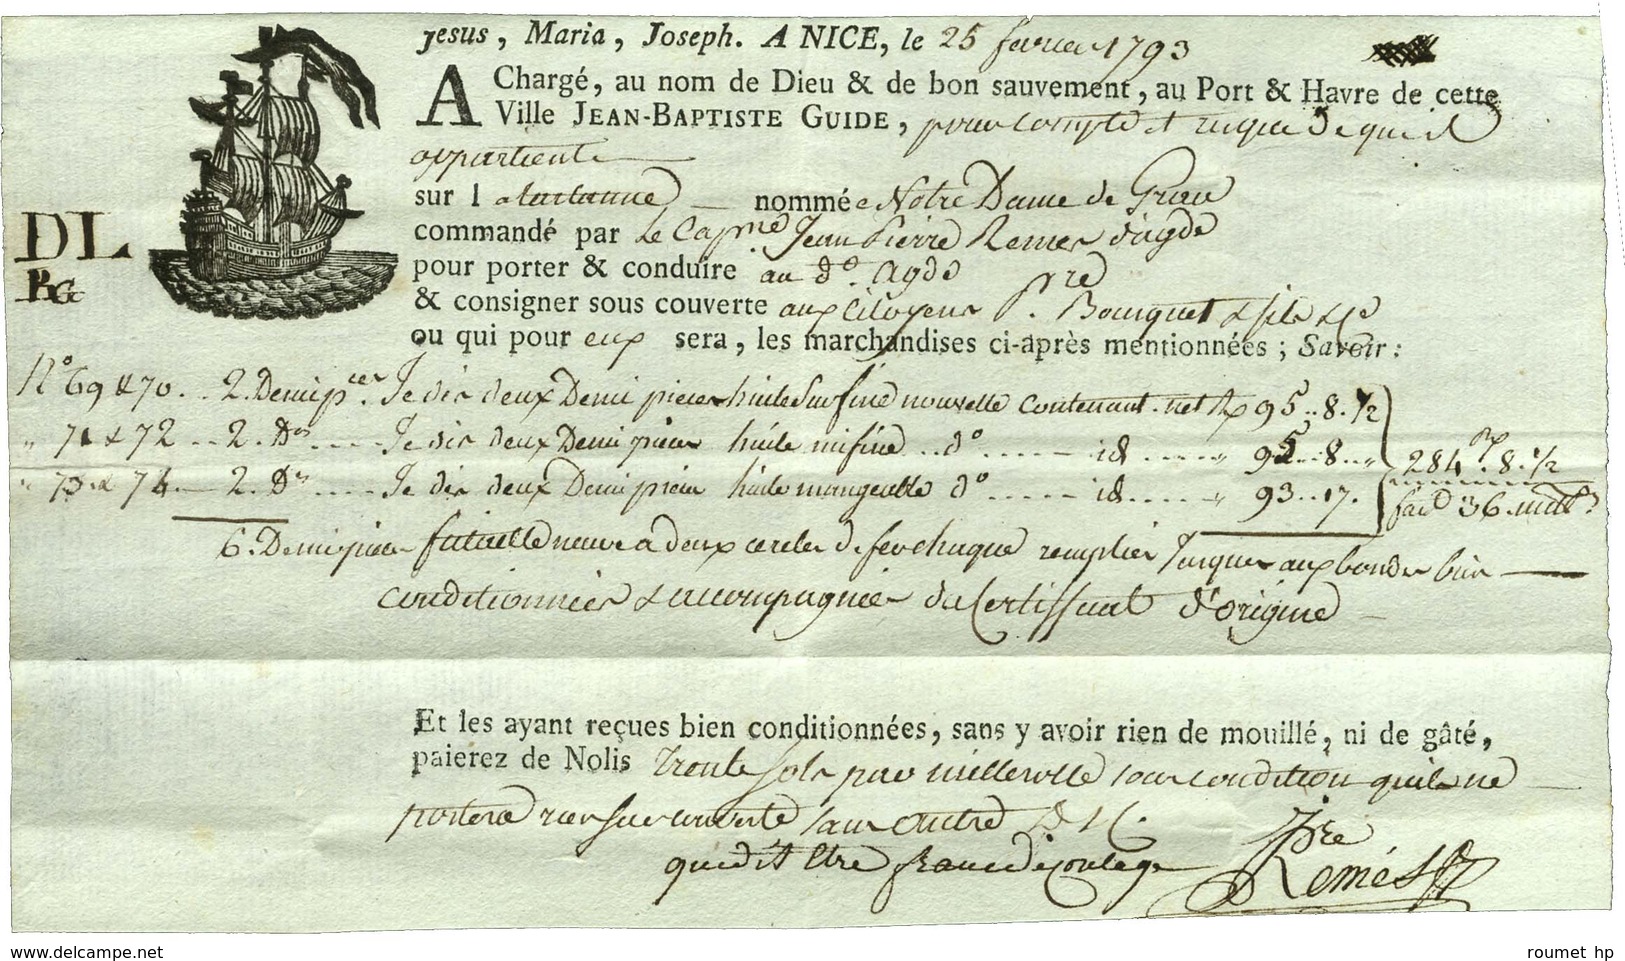 Jesus, Maria, Joseph. A NICE, le 25 fevrier 1793
A Chargé, au nom de Dieu & de bon sauvement, au Port & Havre de cette
Ville JEAN-BAPTISTE GUIDE, pour compte et risque de qui il
appartient
sur l a tartanne nommé e Notre Dame de Grace
commandé par Le Capne Jean Pierre Remes d'agde
pour porter & conduire au do. Agde
& consigner sous couverte aux Citoyens Pre. Bousquet & fils & Ce
ou qui pour eux sera, les marchandises ci-après mentionnées; Savoir:
DL
No 69 & 70 .. 2. Demi pces. Je dis deux Demi pieces huile Surfine nouvelle contenant net Rp 95 .. 8. 1/2
" 71 & 72 .. 2. Ds .... Je dis deux Demi pieces huile mifine .. do ..... id ..... " 95 .. 8 .. "
" 73 & 74 .. 2. Ds .... Je dis deux Demi pieces huile mangeable do ..... id ..... " 93 .. 17.
284 Rp. 8. 1/2
36 mill
6. Demi pieces futaille neuve a deux cercles de fer chaque remplies Jusques aux bondes bien
conditionnées & accompagnées du Certifficat d'origine
Et les ayant reçues bien conditionnées, sans y avoir rien de mouillé, ni de gâté,
paierez de Nolis Trente sols par millerolle sous condition quil ne
portera rien sur couverte sans autre
que dit Etre franc de Coulage
Jpre
Remés
roumet hp